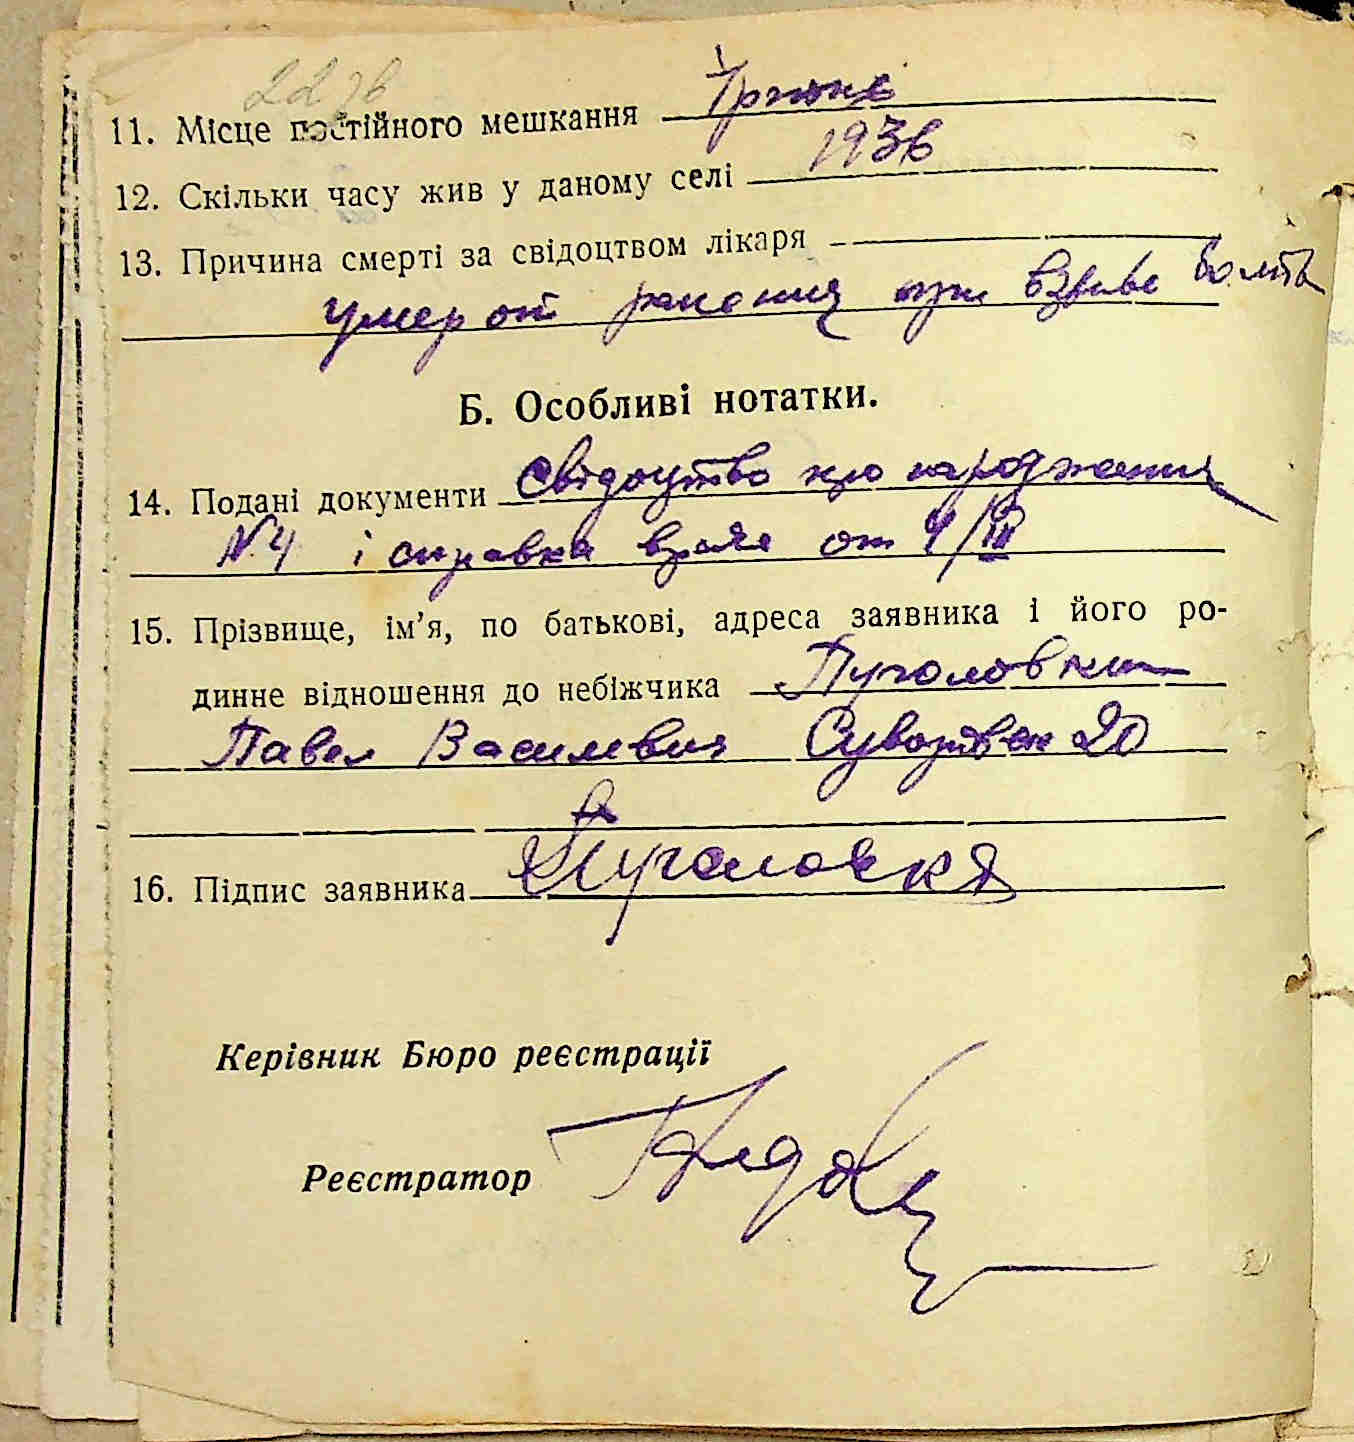 22 зв
11. Місце постійного мешкання
12. Скільки часу жив у даному селі 1936
13. Причина смерті за свідоцтвом лікаря
Умер от ранения при взриве
Б. Особливі нотатки.
14. Подані документи свідоцтво про народження
N 4 і справка врача от 4/III
15. Прізвище, ім'я, по батькові, адреса заявника і його ро-
динне відношення до небіжчика Пуголовкин
Павел Василевич 20
16. Підпис заявника
Керівник Бюро реєстрації
Реєстратор